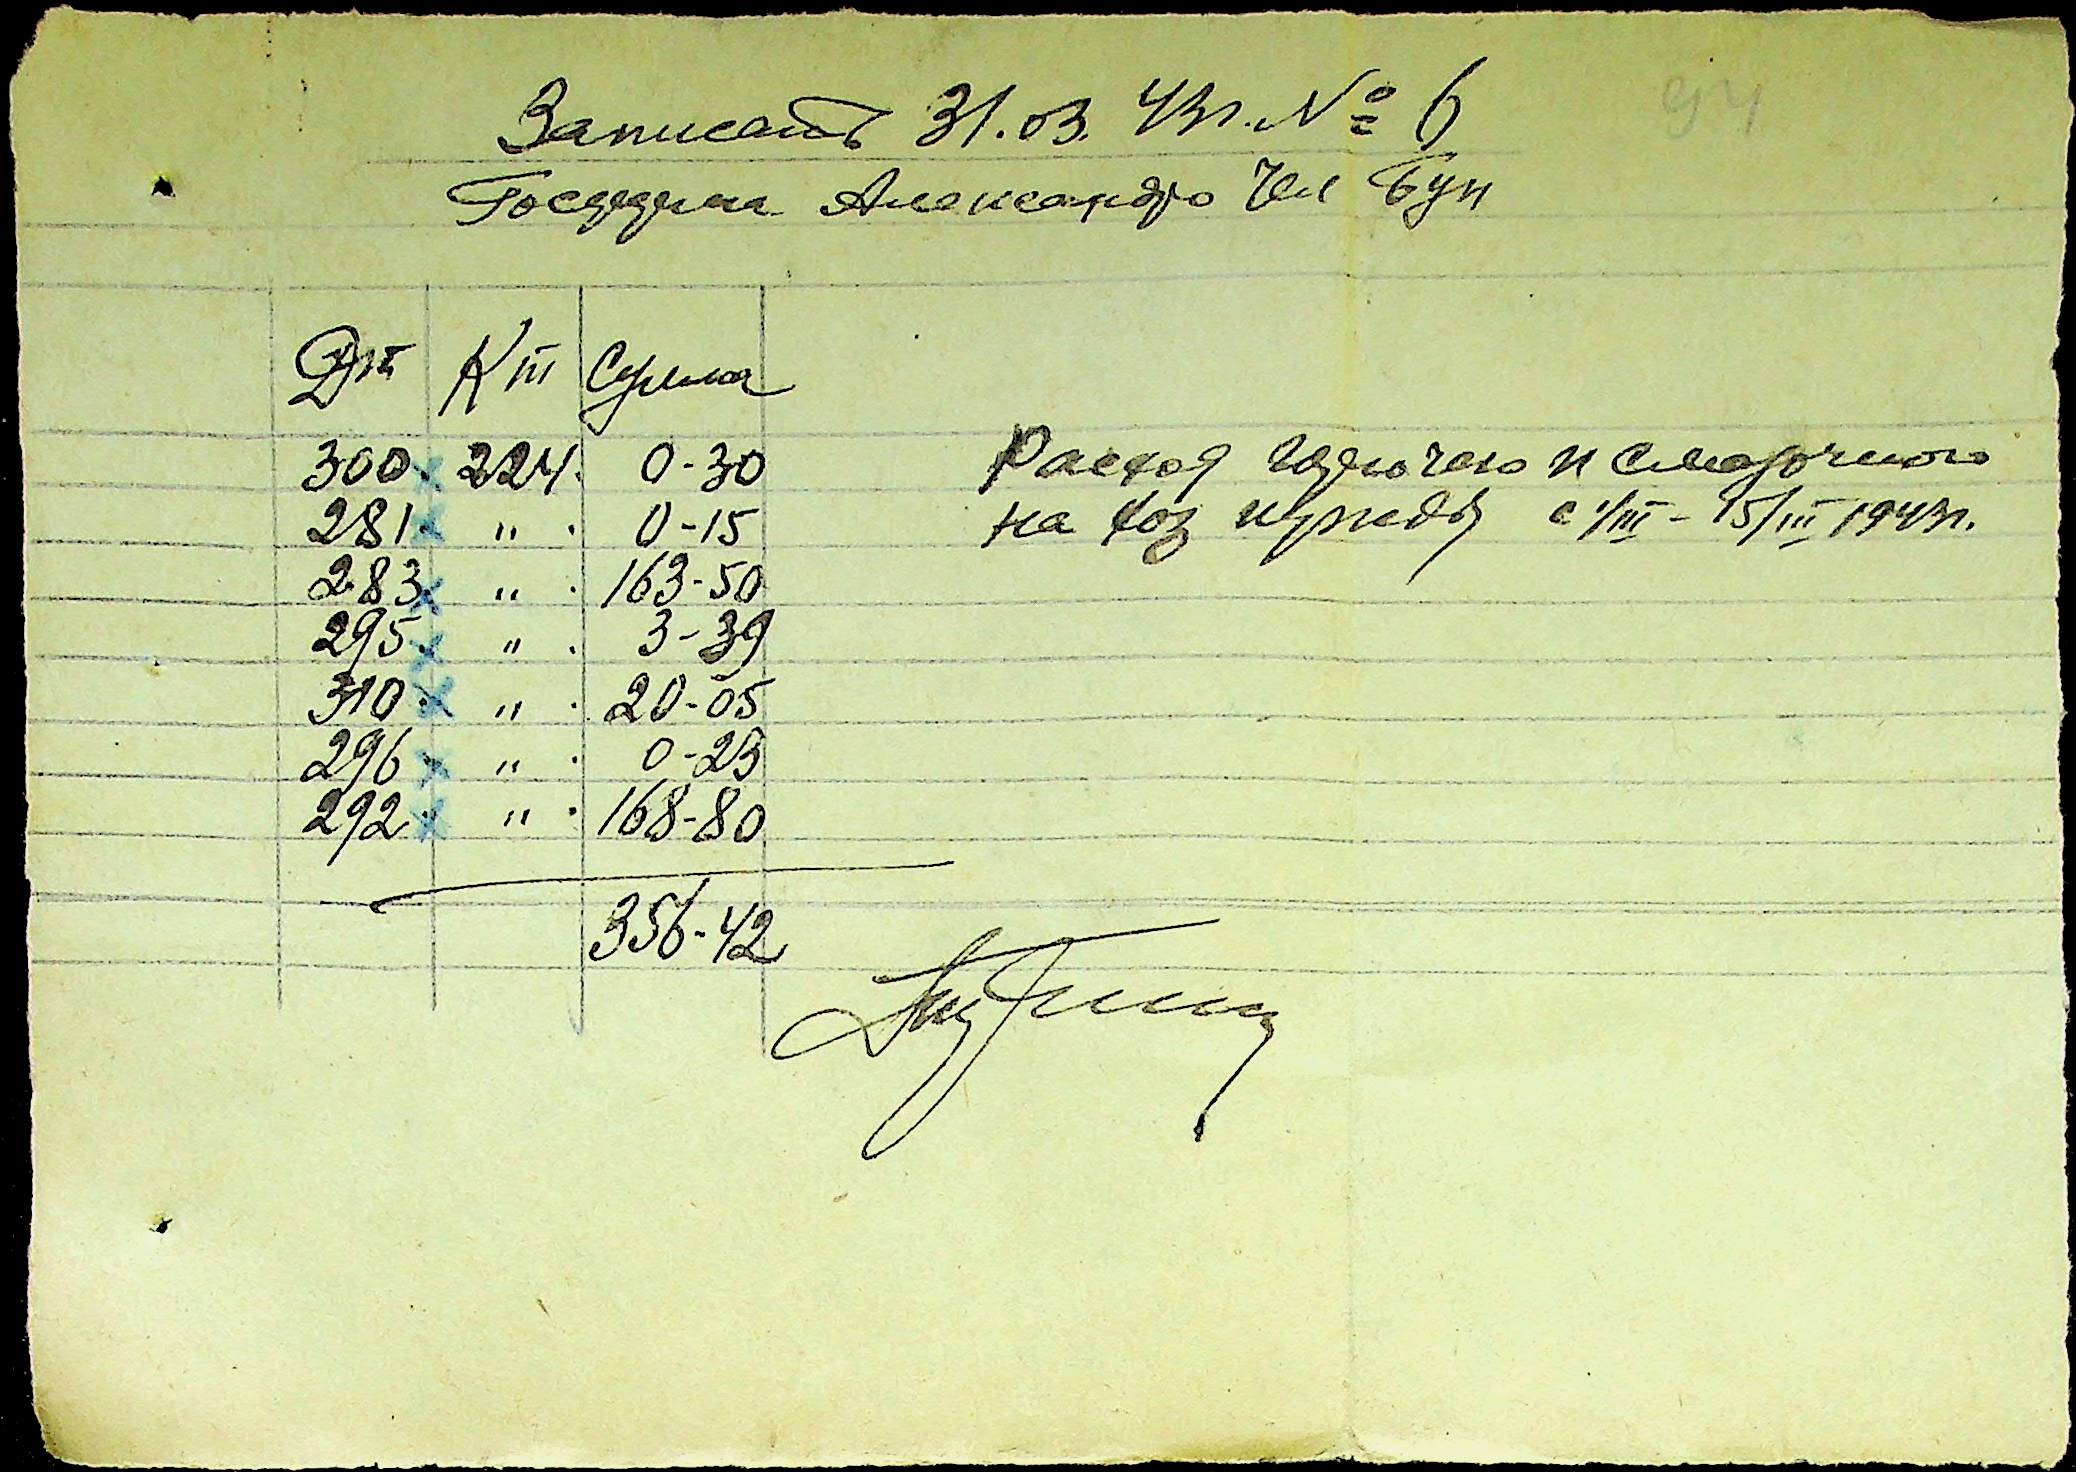 Записать 31.03.43г. № 6
94
Госуддма Александро Чел Бун
Дт Кт Сумма
300. 224. 0-30 Расход горючего и смазочного
281. " . 0-15 на хоз нужды с 1/III - 15/III 1943г.
283. " . 163-50
295. " . 3-39
310. " . 20-05
296 " . 0-23
292. " . 168-80
356-42